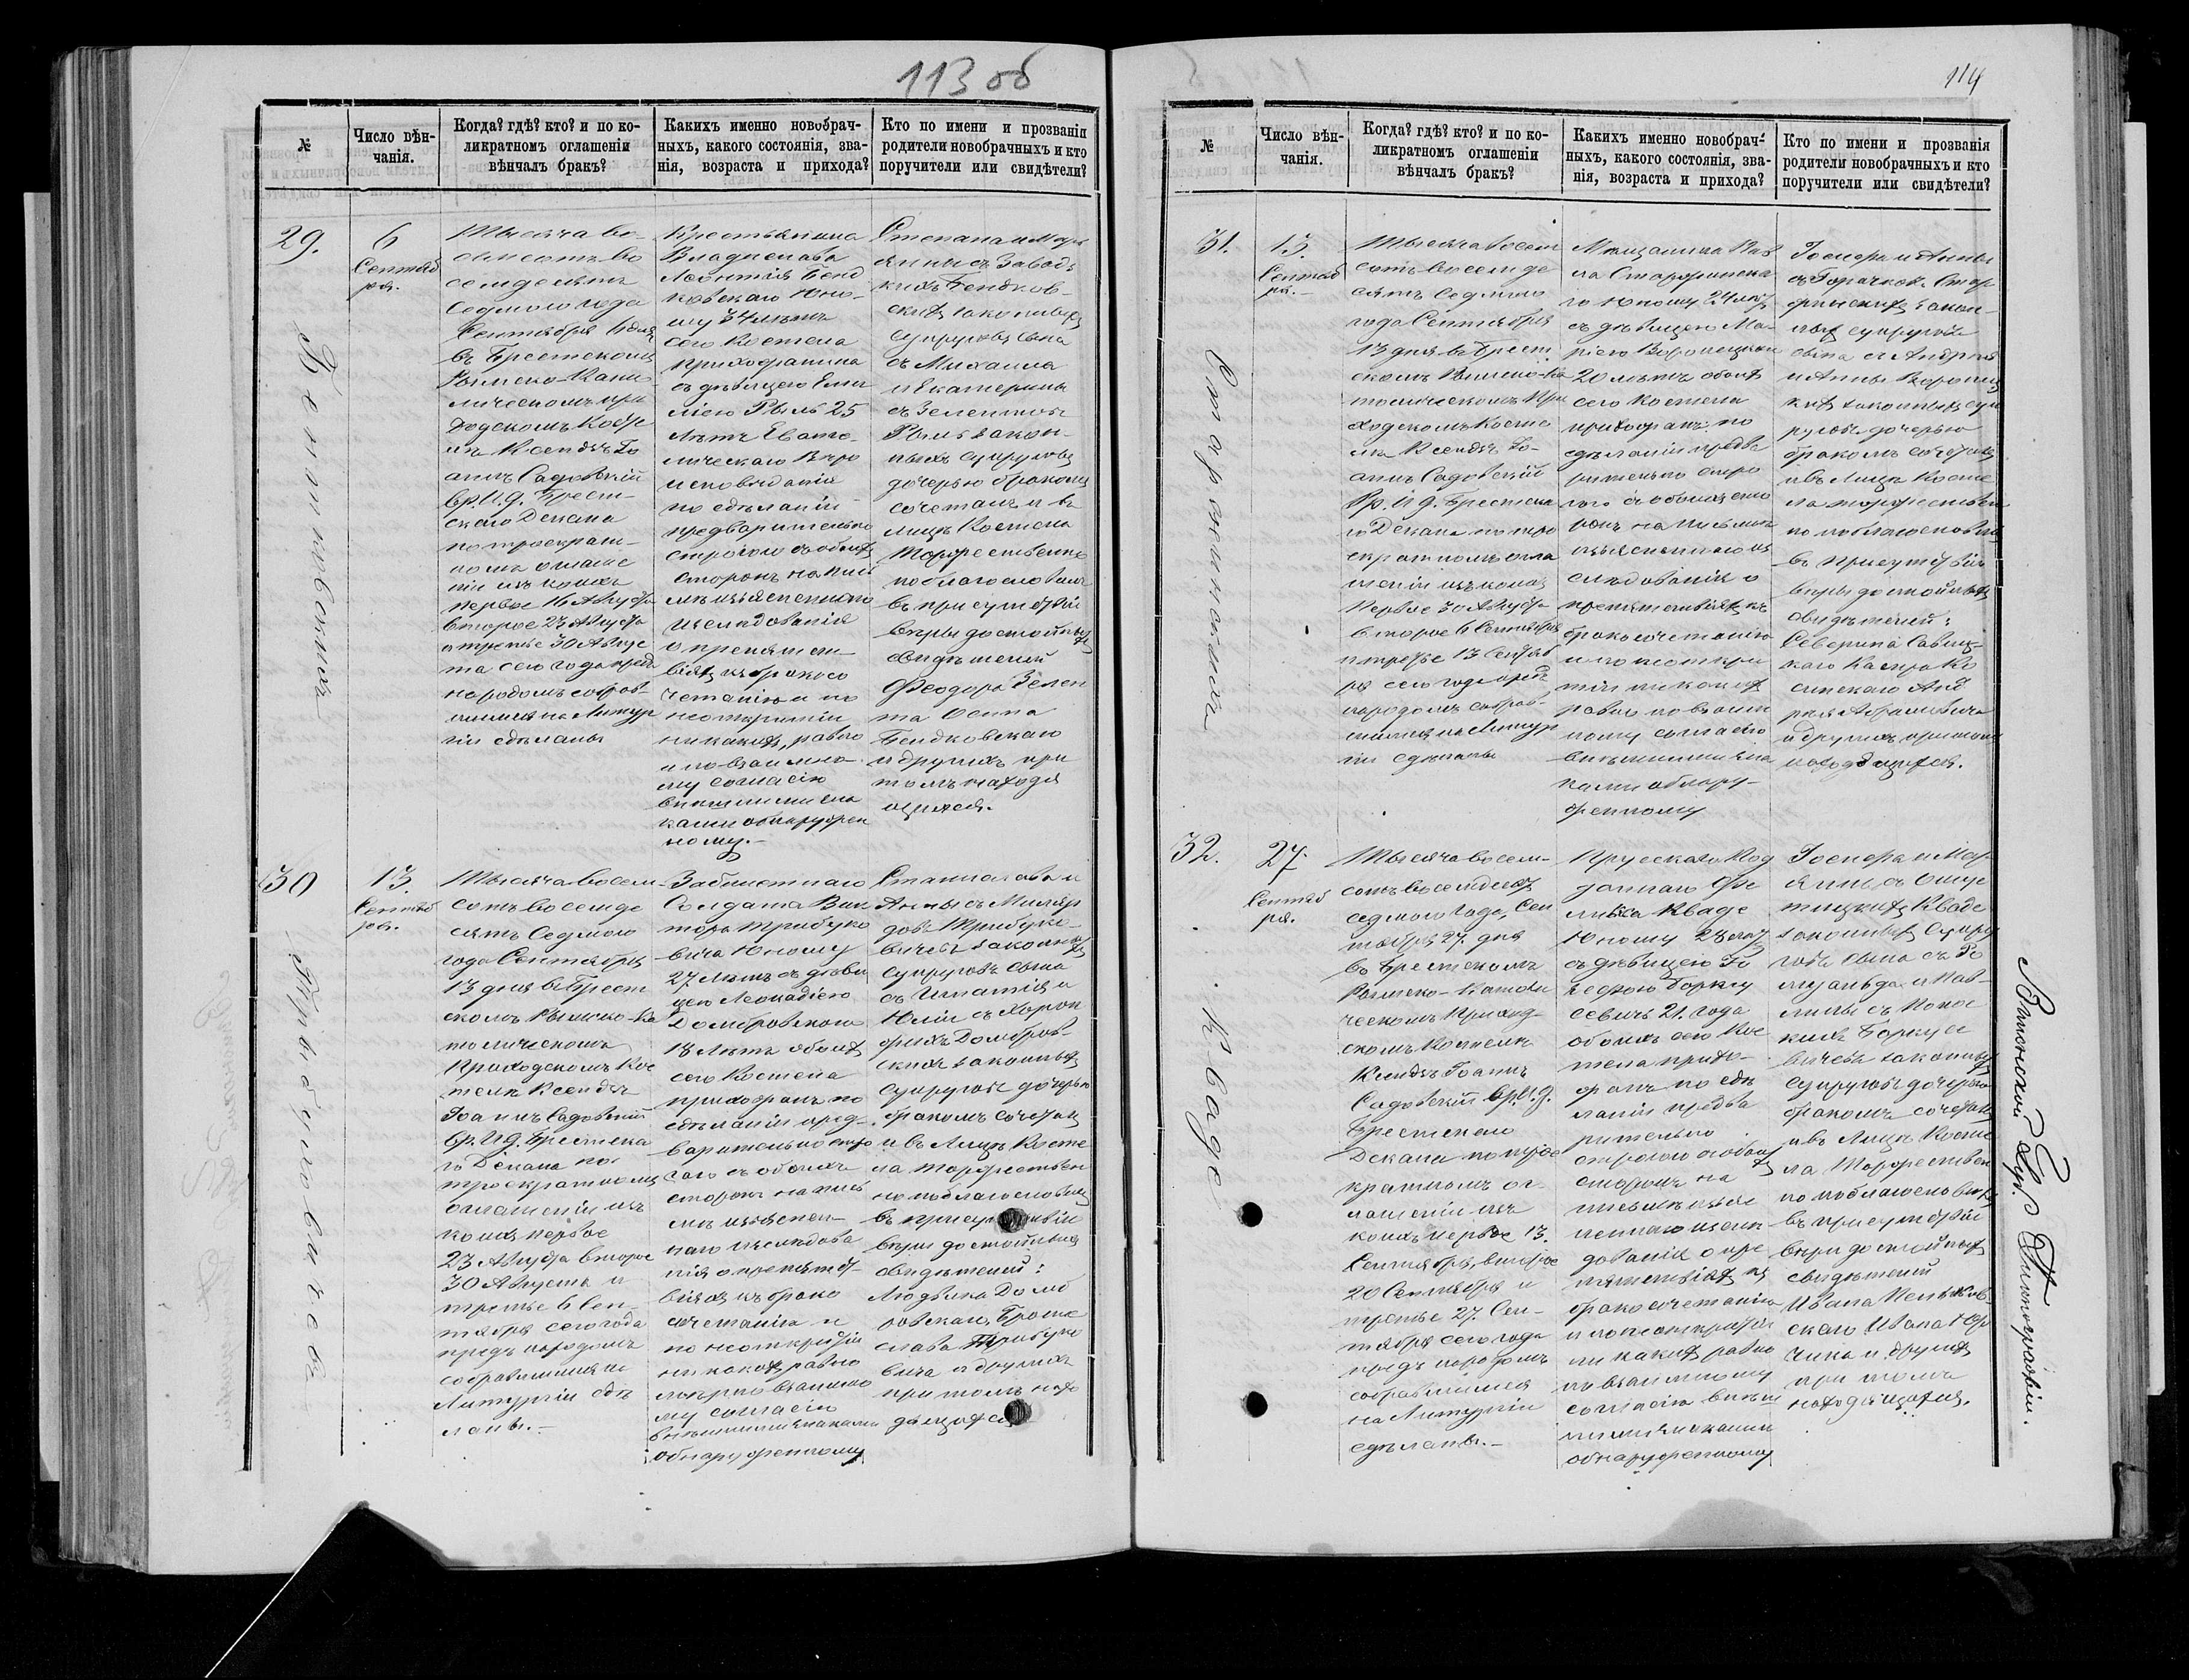 113 об
№
Число вѣн-
чанія.
Когда? гдѣ? кто? и по ко-
ликратномъ оглашеніи
вѣнчалъ бракъ?
Каких​ъ именно новобрач-
ныхъ, какого состоянія, зва-
нія, возраста и прихода?
Кто по имени и прозванія
родители новобрачныхъ и кто
поручители или свидѣтели?
29.
Бендковскихъ
6
Сентяб
ря.
Тысяча во-
семсотъ во
семдесятъ
Седмого года
Сентября 6 дня
въ Брестскомъ
Римско-Като
лическомъ при
ходскомъ Косте
лѣ Ксендзъ Іо
аннъ Садовскій
Вр. И. д. Брест-
скаго Декана
по троекрат-
номъ оглаше
ніи изъ коихъ
первое 16 Августа
второе 23 Августа
а третье 30 Авгус
та сего года предъ
народомъ собрав-
шимся на Литур
гіи сдѣланы
Крестьянина
Владислава
Леонтія Бенд
ковскаго Юно-
шу 34 лѣтъ
сего Костела
прихожанина
съ дѣвицею Еми
ліею Рыль 25
лѣтъ
ческаго Вѣро
исповѣданія
по сдѣланіи
предварительно
строгого съ обоихъ
сторонъ на пись
мѣ изъясненного
изслѣдованія
о препятст-
віяхъ къ бракосо
четанію и по
неоткрытіи
никакихъ, равно
и по взаимно-
му согласію
внѣшними зна
ками обнаружен
ному.-
Степана и Мар
янны съ Завод
кихъ Бендков-
скихъ законныхъ
супруговъ сына
съ Михаила
и Екатерины
съ
Рыль закон-
ныхъ супруговъ
дочерью бракомъ
сочеталъ и въ
лицѣ Костела
торжественно
поблагословилъ
въ присутствіи
вѣры достойныхъ
свидѣтелей
Феодора Зелен
та Осипа
Бендковскаго
и другихъ при
томъ находя
щихся.
30
Трибуховичевъ
13.
Сентяб
ря.
Тысяча восем-
сотъ восемде
сятъ Седмого
года Сентября
13 дня въ Брест
скомъ Римско-Ка
толическомъ
Приходскомъ Кос
телѣ Ксендзъ
Іоаннъ Садовскій
Вр. И. д. Брестска
го Декана по
троекратномъ
оглашеніи изъ
коихъ первое
23 Августа второе
30 Августа и
третье 6 Сен-
тября сего года
предъ народомъ
собравшимся на
Литургіи сдѣ
ланы.-
Забилетнаго
Солдата Вик
тора Трибухо
вича Юношу
27 лѣтъ съ дѣви
цею Леокадіею
Домбровскою
18 лѣтъ обоихъ
сего Костела
прихожанъ по
сдѣланіи пред-
варительно стро
гого съ обоихъ
сторонъ на пись
мѣ изъяснен-
наго изслѣдова
нія о препятст-
віяхъ къ брако
сочетанію и
по неоткрытіи
никакихъ равно
по взаимно
му согласію
внѣшними знаками
обнаруженному
Станислава и
Анны съ
Трибухо-
вичевъ законныхъ
супруговъ сына
съ Игнатія и
Юліи съ
Домбров-
скихъ законныхъ
супруговъ дочерью
бракомъ сочеталъ
и въ Лицѣ Косте
ла торжествен
но поблагословилъ
въ присутствіи
вѣры достойныхъ
свидѣтелей:
Людвика Домб
ровскаго, Брони
слава Трибухо
вича и другихъ
при томъ нахо
дящихся
114
№
Число вѣн-
чанія.
Когда? гдѣ? кто? и по ко-
ликратномъ оглашеніи
вѣнчалъ бракъ?
Какихъ именно новобрач-
ныхъ, какого состоянія, зва-
нія, возраста и прихода?
Кто по имени и прозванія
родители новобрачныхъ и кто
поручители или свидѣтели?
31.
13.
Сентяб
ря.-
Тысяча восем
сотъ восемде
сятъ Седмого
года Сентября
13 дня въ Брест
скомъ Римско-Ка
толическомъ При
ходскомъ Косте
лѣ Ксендзъ Іо-
аннъ Садовскій
Вр. И. д. Брестска
го Декана по тро
екратномъ огла
шеніи изъ коихъ
первое 30 Августа
второе 6 Сентября
и третье 13 Сентяб
ря сего года предъ
народомъ собрав-
шимся на Литур
гіи сдѣланы
Мѣщанина Пав
ла
го Юношу 24 лѣтъ
съ дѣвицею Ма-
ріею
20 лѣтъ обоихъ
сего Костела
прихожанъ по
сдѣланіи предва
рительно стро
гого съ обоихъ сто
ронъ на письмѣ
изъясненнаго из
слѣдованія о
препятствіяхъ къ
бракосочетанію
и по неоткры
тіи никакихъ
равно по взаим
ному согласію
внѣшними зна
ками обнару-
женному
и Анны
законныхъ супруговъ
сына съ Андрея
и Анны
кихъ законныхъ суп
руговъ дочерью
бракомъ сочеталъ
и въ Лицѣ Косте
ла торжествен
но поблагословилъ
въ присутствіи
вѣры достойныхъ
свидѣтелей:
Северина Савиц-
каго
скаго Анд
рея Абрамовича
и другихъ при томъ
находящихся.
32.
Кваде
27.
Сентяб
ря.
Тысяча восем-
сотъ восемдесятъ
седмого года, Сен
тября 27. дня
въ Брестскомъ
Римско-Католи
ческомъ Приход-
скомъ Костелѣ
Ксендзъ Іоаннъ
Садовскій Вр. И. д.
Брестскаго
Декана по трое
кратномъ ог-
лашеніи изъ
коихъ первое 13.
Сентября, второе
20 Сентября и
третье 27. Сен-
тября сего года
предъ народомъ
собравшимся
на Литургіи
сдѣланы.-
Прусскаго Под
даннаго Фе
ликса Кваде
Юношу 28 лѣтъ
съ дѣвицею Іо
зефою Борку
севичъ 21. года
обоихъ сего Кос
тела прихо-
жанъ по сдѣ
ланіи предва
рительно
строгого съ обоихъ
сторонъ на
письмѣ изъяс
неннаго изслѣ
дованія о пре
пятствіяхъ къ
бракосочетанію
и по неоткрытіи
никакихъ равно
по взаимному
согласію внѣш
ними знаками
обнаруженному
и Мар
янны съ
Кваде
законныхъ супру
говъ сына съ Ро
муальда и Пав-
лины съ
Боркусе
вичевъ законныхъ
супруговъ дочерью
бракомъ сочеталъ
и въ Лицѣ Косте
ла торжествен
но поблагословилъ
въ присутствіи
вѣры достойныхъ
свидѣтелей
Ивана
скаго Ивана
и другихъ
при томъ
находящихся.
Типографіи.